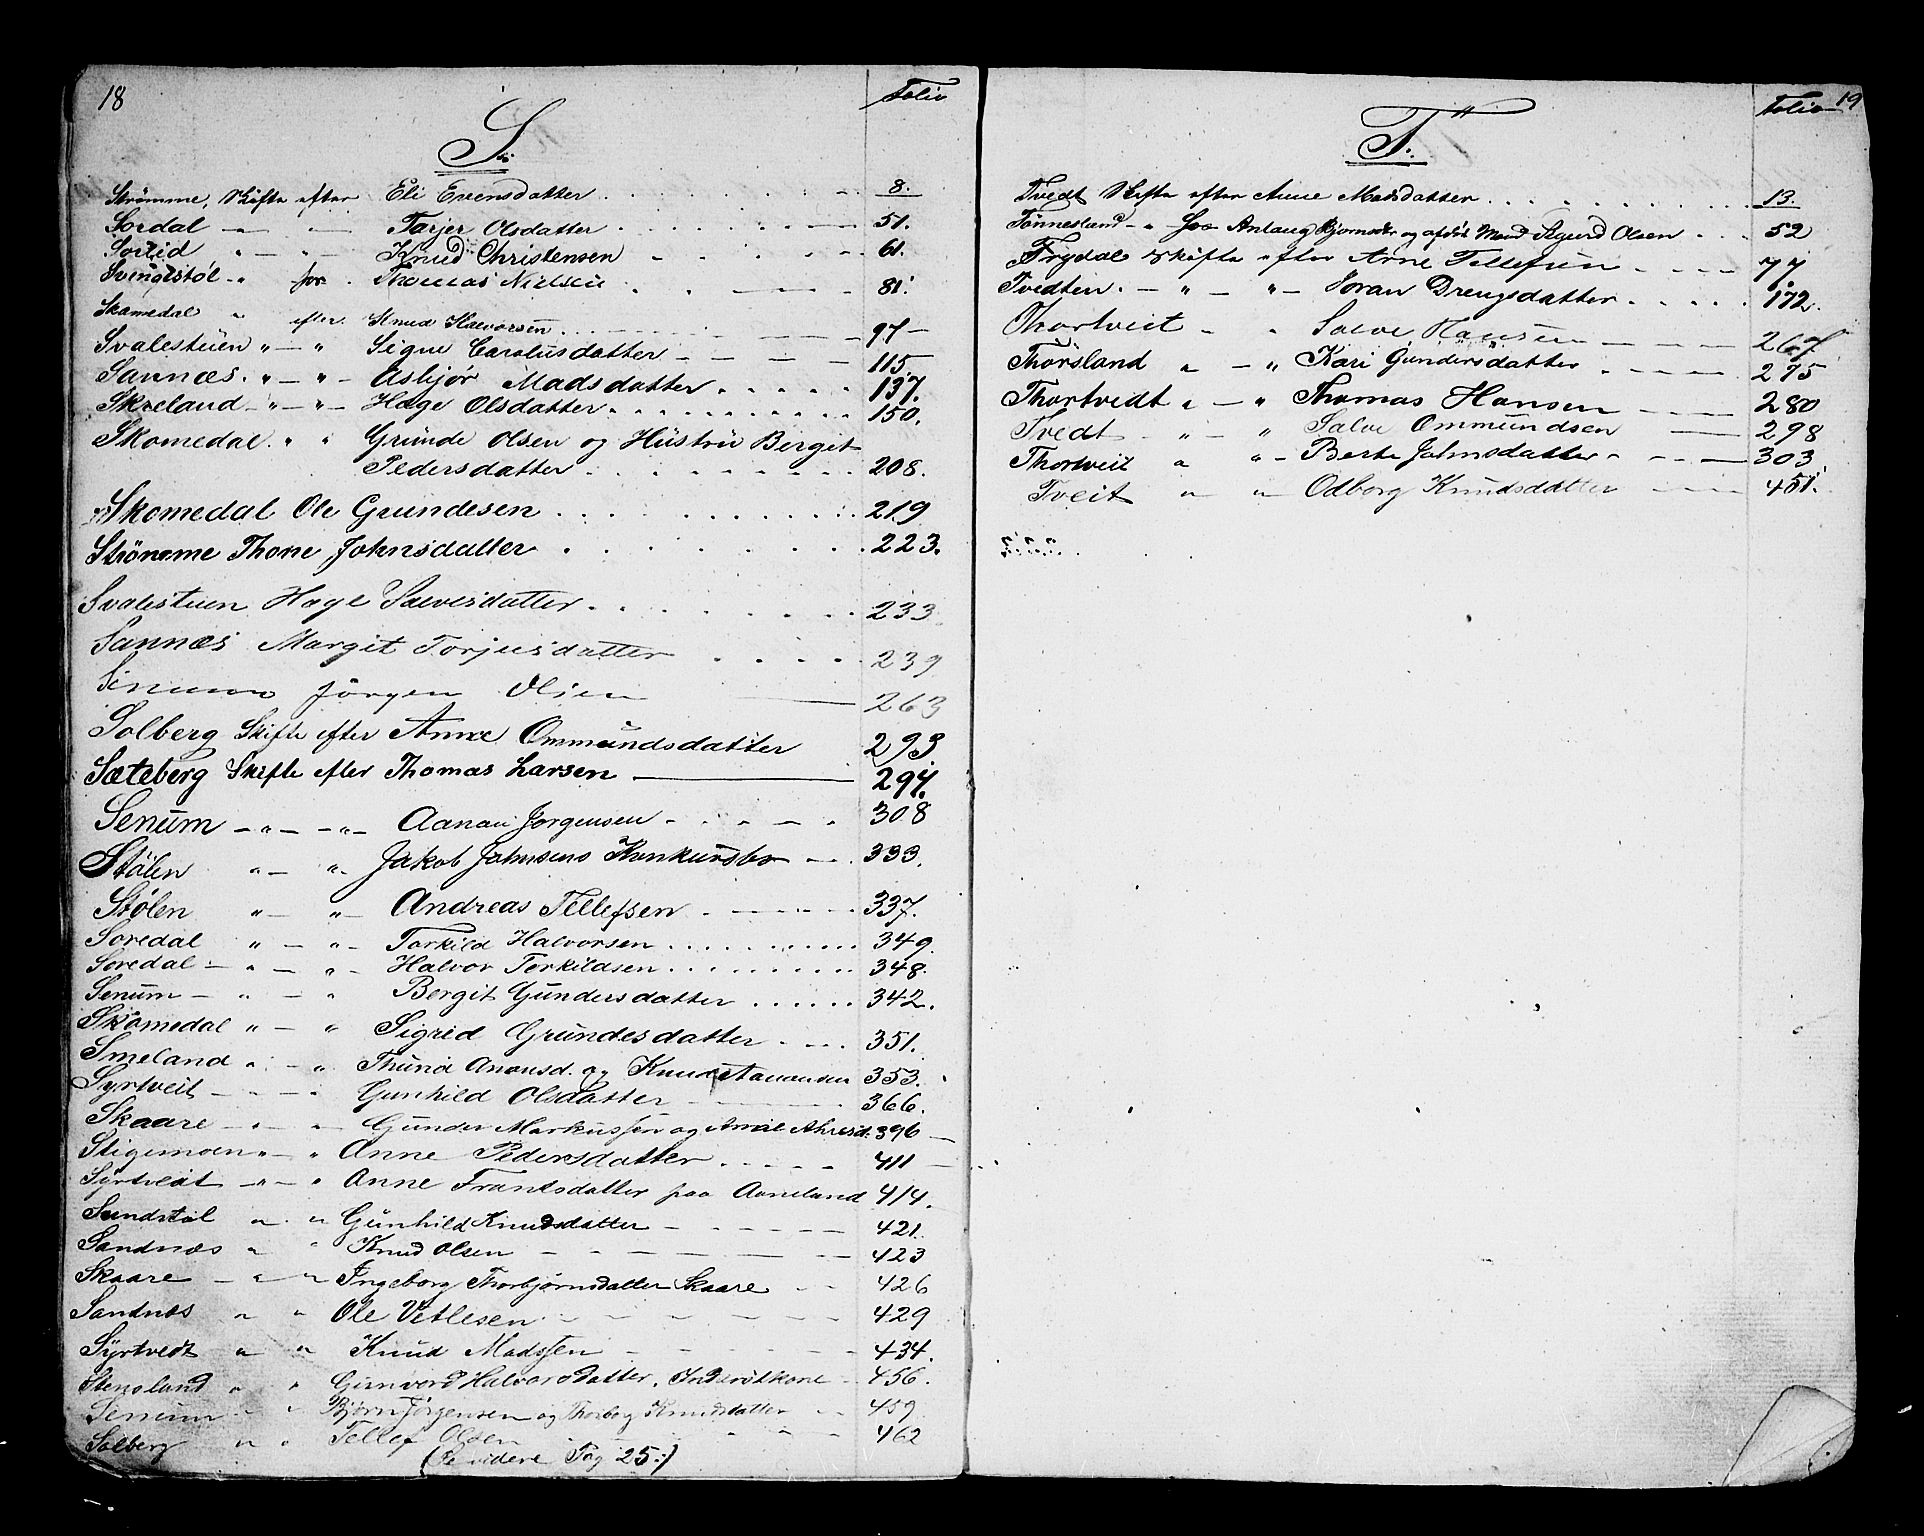 18
Folio
S.
Strømme, Skifte efter Eli Evensdatter 8.
Sordal — " — Tarjer Olsdatter 51.
Sortid " — " — Knud Christensen 61.
Svingtstøl " for Thomas Nielsen 81.
Skomedal " efter Knud Halvorsen 97 —
Svalestuen " — " Signe Carolusdatter — 115.
Sannæs. " — " — Asbjør Madsdatter 137.
Skreland — " — " — Hage Olsdatter 150.
Skomedal. " " Grunde Olsen og Hustru Bergit
Pedersdatter 208.
Skomedal Ole Grundesen 219
Strømme Thone Johnsdatter 223.
Svalestuen Hage Salvesdatter 233
Sannæs Margit Torjusdatter 239
Senum Jørgen Olsen — 263
Solberg Skifte efter Anne Ommundsdatter 293
Sæteberg Skifte efter Thomas Larsen — 297.
Senum — " — — " — Aanau Jørgensen 308
Stølen " — " Jakob Johnsens Konkursbo — 333.
Stølen " — " — Andreas Tellefsen 337.
Soredal " — " — Torkild Halvorsen 349.
Soredal — " — " — Halvor Torkildsen 348.
Senum — " — " Bergit Gundersdatter 342.
Skomedal " — " Sigrid Grundesdatter 351.
Smeland " — " Thurid Anonsd. og Knud Aanonsen 353.
Syrtveit — " — " Gunhild Olsdatter 366.
Skaare — " — Gunder Markussen og 396 —
Stigemoen " — " Anne Pedersdatter 411 —
Syrtveit — " — " Anne Frantsdatter paa Aaneland 414.
Sundstøl " " Gunhild Knudsdatter — 421.
Sandnæs " " Knud Olsen — 423
Skaare — " " Ingeborg Thorbjørnsdatter Skaare 426
Sandnæs " " Ole Vetlesen 429
Syrtvedt " " Knud Madssen 434.
Stensland " " Gunvord Halvorsdatter, Inderstkone 456.
Senum " " Bjørn Jørgensen og Thorbog Knudsdatter 459
Solberg " " Tellef Olsen 462
(Se videre Pag 25.)
Folio 19
T.
Tvedt Skifte efter Anne Madsdatter 13.
Tønnesland — " for Anlaug Bjornsdr og afdøde Mand Sigurd Olsen 52
Frydal Skifte efter Arne Tellefsen 77.
Tvedten. — " — " — Joran Drengsdatter 172.
Thortveit — " Salve Hansen — 267.
Thorsland " — " Kari Gundersdatter 275
Thortvedt " — " Thomas Hansen — 280
Tvedt " — " Salve Ommundsen — 298
Thortveit " " — Berte Johnsdatter 303
Tveit " " Odborg Knudsdatter 451.